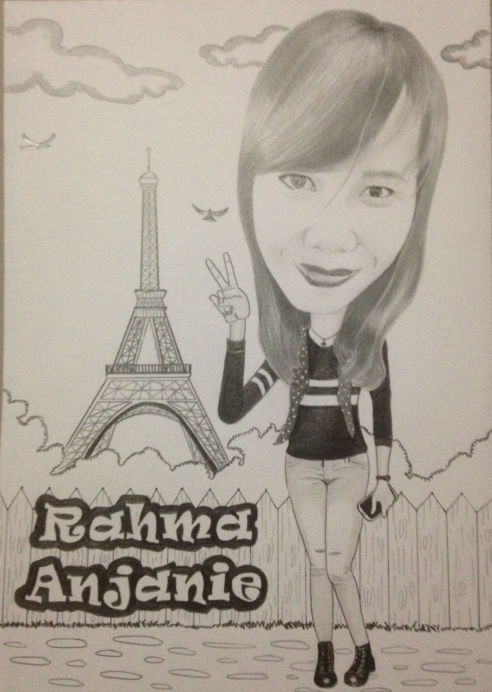 Rahma
Anjanie